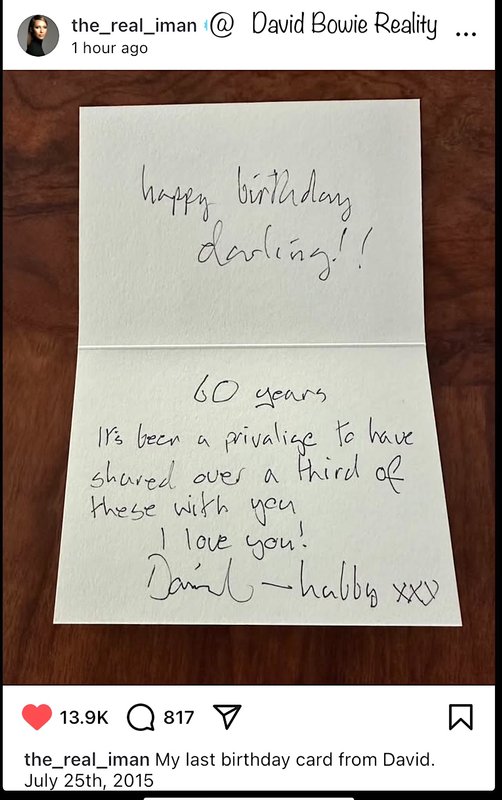 the_real_iman @ David Bowie Reality
1 hour ago
happy birthday
darling!!
60 years
It's been a privalige to have
shared over a third of
these with you
I love you!
David – hubby xxx
13.9K 817
the_real_iman My last birthday card from David.
July 25th, 2015